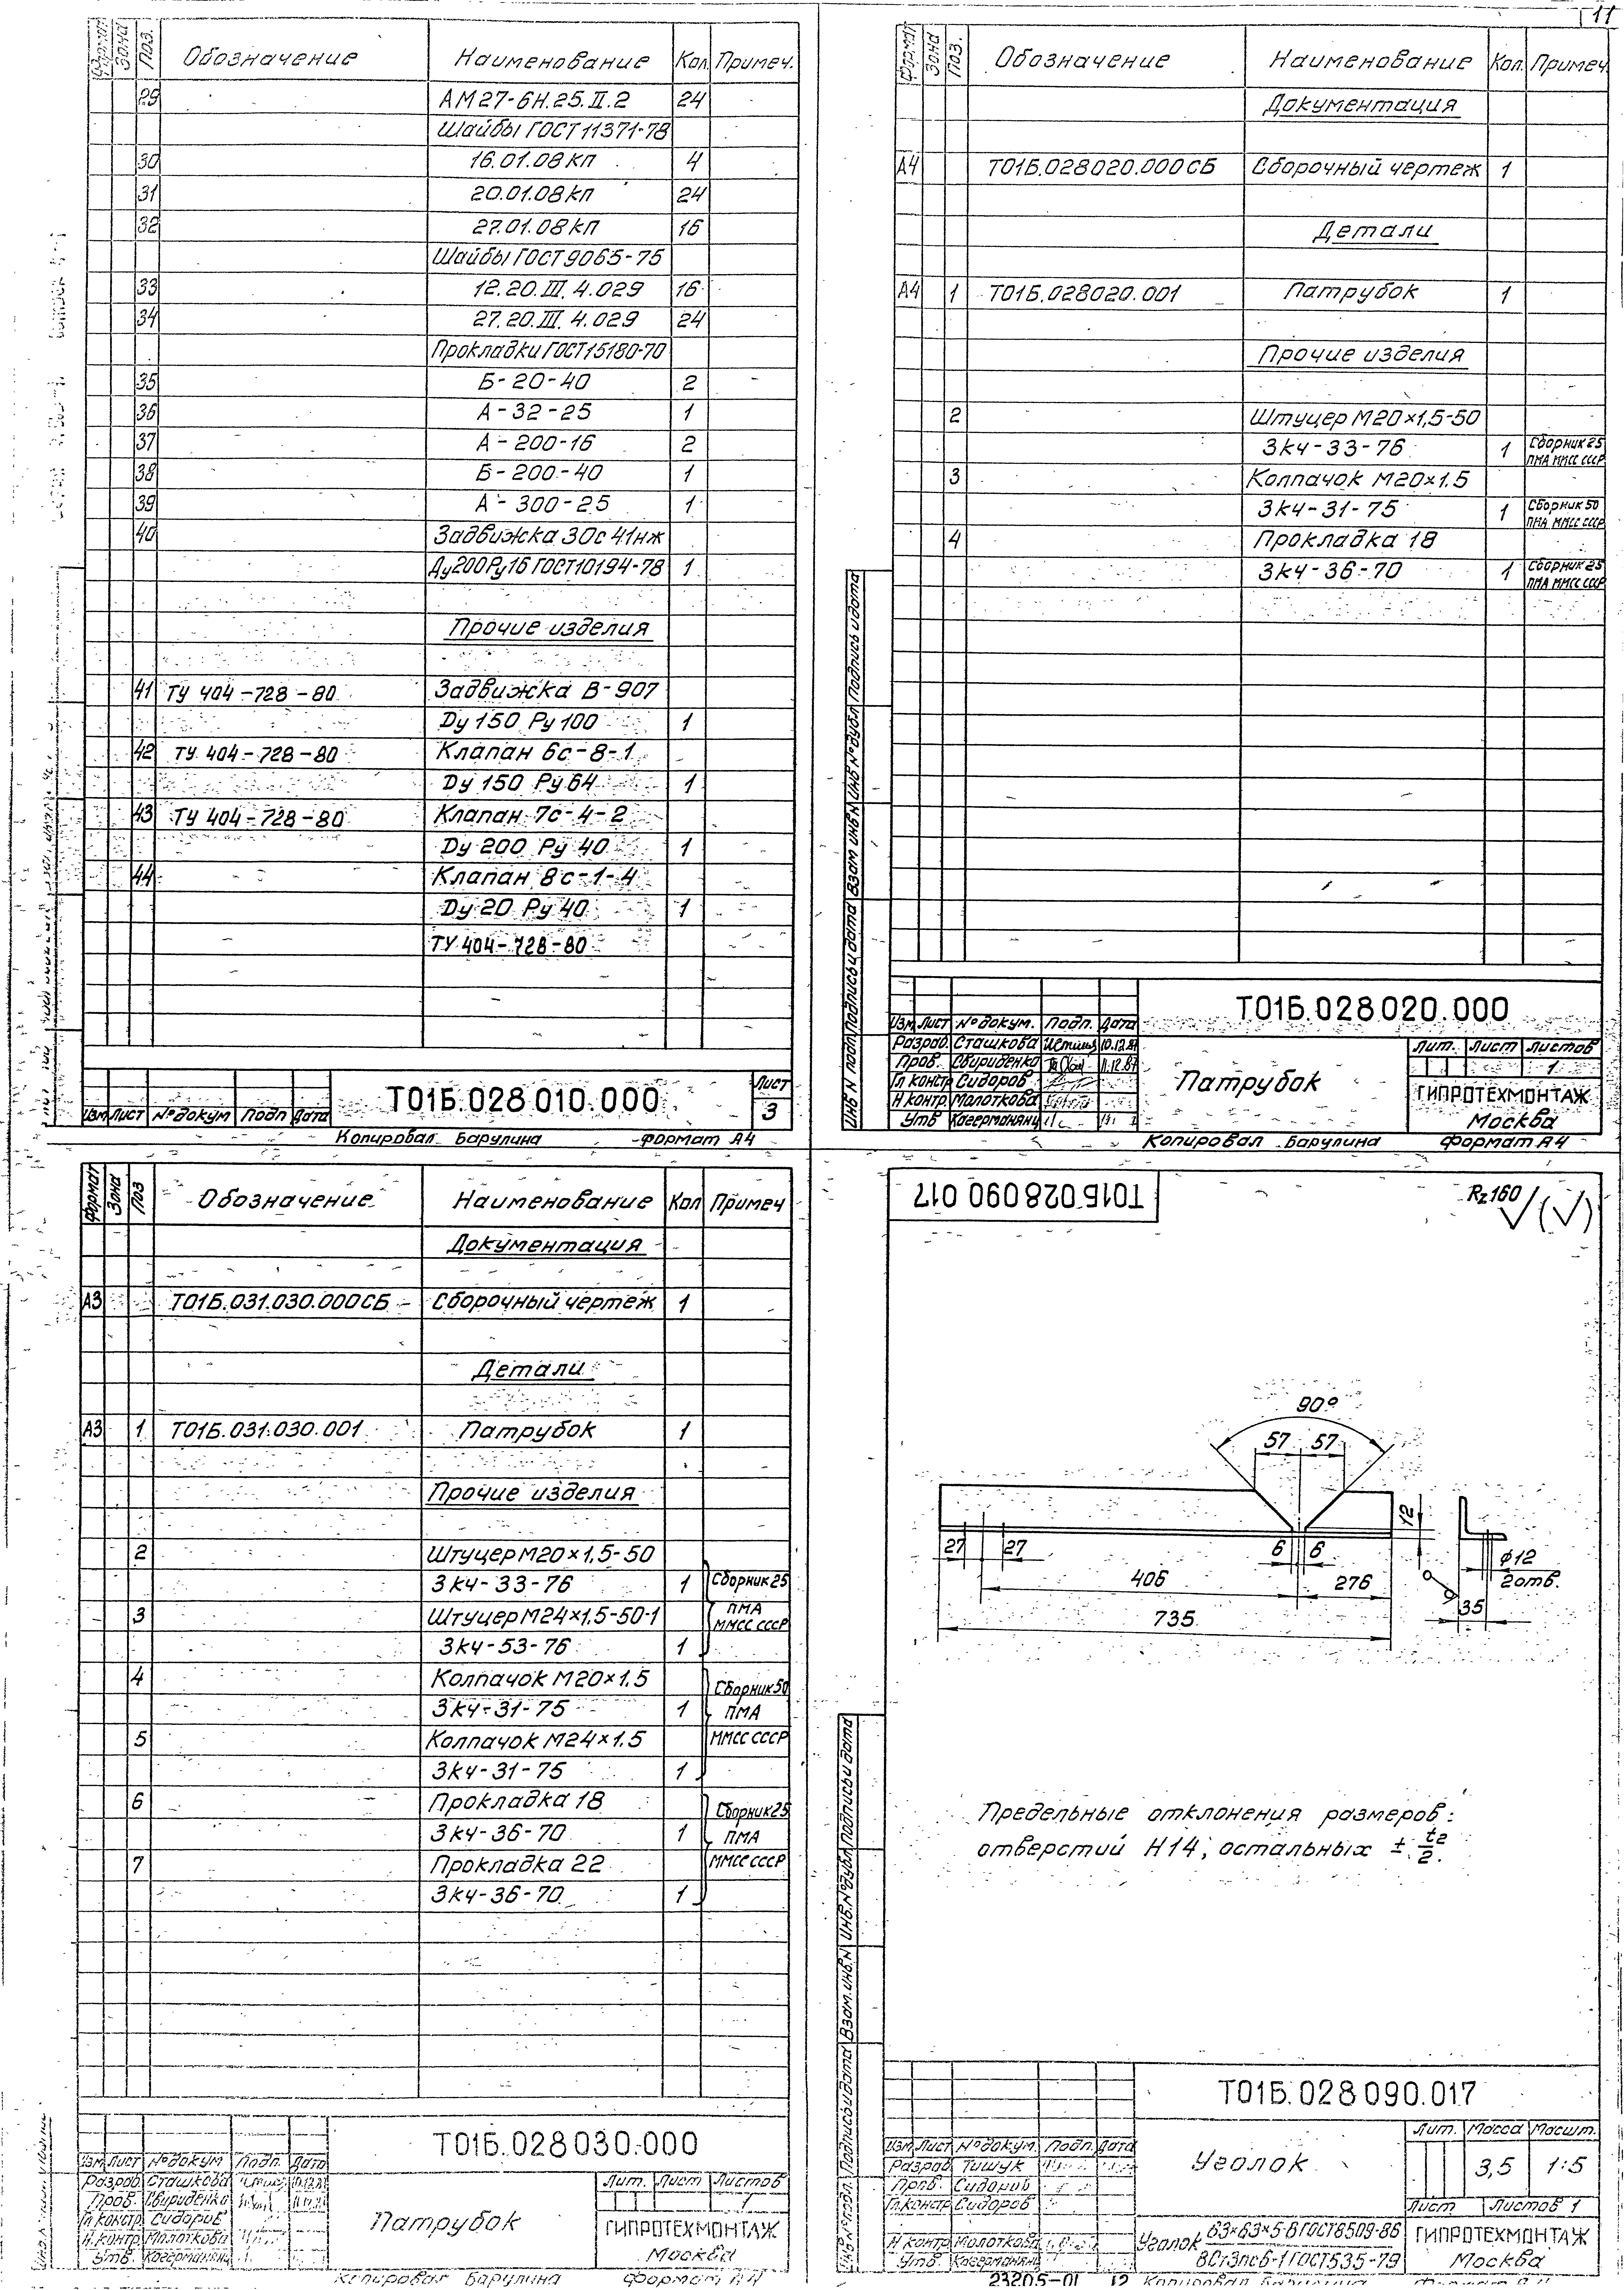 11
Формат Зона Поз. Обозначение Наименование Кол. Примеч.
29 АМ27-6Н.25.II.2 24
Шайбы ГОСТ 11371-78
30 16.01.08кп 4
31 20.01.08кп 24
32 27.01.08кп 16
Шайбы ГОСТ 9065-75
33 12.20.III.4.029 16
34 27.20.III.4.029 24
Прокладки ГОСТ 15180-70
35 Б-20-40 2
36 А-32-25 1
37 А-200-16 2
38 Б-200-40 1
39 А-300-25 1
40 Задвижка 30с41нж
Ду200Ру16 ГОСТ 10194-78 1
Прочие изделия
41 ТУ 404-728-80 Задвижка В-907
Ду 150 Ру 100 1
42 ТУ 404-728-80 Клапан 6с-8-1
Ду 150 Ру 64 1
43 ТУ 404-728-80 Клапан 7с-4-2
Ду 200 Ру 40 1
44 Клапан 8с-1-4
Ду 20 Ру 40 1
ТУ 404-728-80
Изм Лист № докум Подп Дата
Т01Б.028.010.000
Лист
3
Копировал Барулина формат А4
Формат Зона Поз. Обозначение Наименование Кол. Примеч.
Документация
А4 Т01Б.028020.000СБ Сборочный чертеж 1
Детали
А4 1 Т01Б.028020.001 Патрубок 1
Прочие изделия
2 Штуцер М20×1,5-50
3кч-33-76 1 Сборник 25
ПМА ММСС СССР
3 Колпачок М20×1.5
3кч-31-75 1 Сборник 50
ПМА ММСС СССР
4 Прокладка 18
3кч-36-70 1 Сборник 25
ПМА ММСС СССР
Инв N подл Подпись и дата Взам инв N Инв № дубл Подпись и дата
Т01Б.028020.000
Изм Лист № докум. Подп. Дата
Разраб. Сташкова 10.12.87
Пров. Свириденко 11.12.87
Гл констр Сидоров
Н контр. Молоткова
Утв
Патрубок
Лит. Лист Листов
1
ГИПРОТЕХМОНТАЖ
Москва
Копировал Барулина формат А4
Формат Зона Поз Обозначение Наименование Кол Примеч
Документация
А3 Т01Б.031.030.000СБ Сборочный чертеж 1
Детали
А3 1 Т01Б.031.030.001 Патрубок 1
Прочие изделия
2 Штуцер М20×1,5-50
3кч-33-76 1 Сборник 25
ПМА
3 Штуцер М24×1.5-50-1 ММСС СССР
3кч-53-76 1
4 Колпачок М20×1.5 Сборник 50
3кч-31-75 1 ПМА
5 Колпачок М24×1.5 ММСС СССР
3кч-31-75 1
6 Прокладка 18 Сборник 25
3кч-36-70 1 ПМА
7 Прокладка 22 ММСС СССР
3кч-36-70 1
Т01Б.028030.000
Изм Лист № докум Подп. Дата
Разраб Сташкова
Пров. Свириденко
Гл.констр. Сидоров
Н.контр. Молоткова
Утв.
Патрубок
Лит. Лист Листов
1
ГИПРОТЕХМОНТАЖ
Москва
Копировал Барулина формат А4
Т01Б.028 090 017
Rz160 √(√)
90°
57 57
12
27 27 6 6
406 276
735
ϕ12
2 отв.
35
Предельные отклонения размеров:
отверстий Н14, остальных ± t2/2.
Инв.№ подл. Подпись и дата Взам.инв.N Инв.№ дубл Подпись и дата
Т01Б.028 090.017
Изм Лист № докум. Подп. Дата
Разраб Тишук
Пров. Сидоров
Гл.констр Сидоров
Н контр Молоткова
Утв.
Уголок
Лит. Масса Масшт.
3,5 1:5
Лист Листов 1
Уголок 63×63×5-В ГОСТ 8509-86
ВСт3пс6-1 ГОСТ 535-79
ГИПРОТЕХМОНТАЖ
Москва
23205-01 12 Копировал Барулина Формат А4